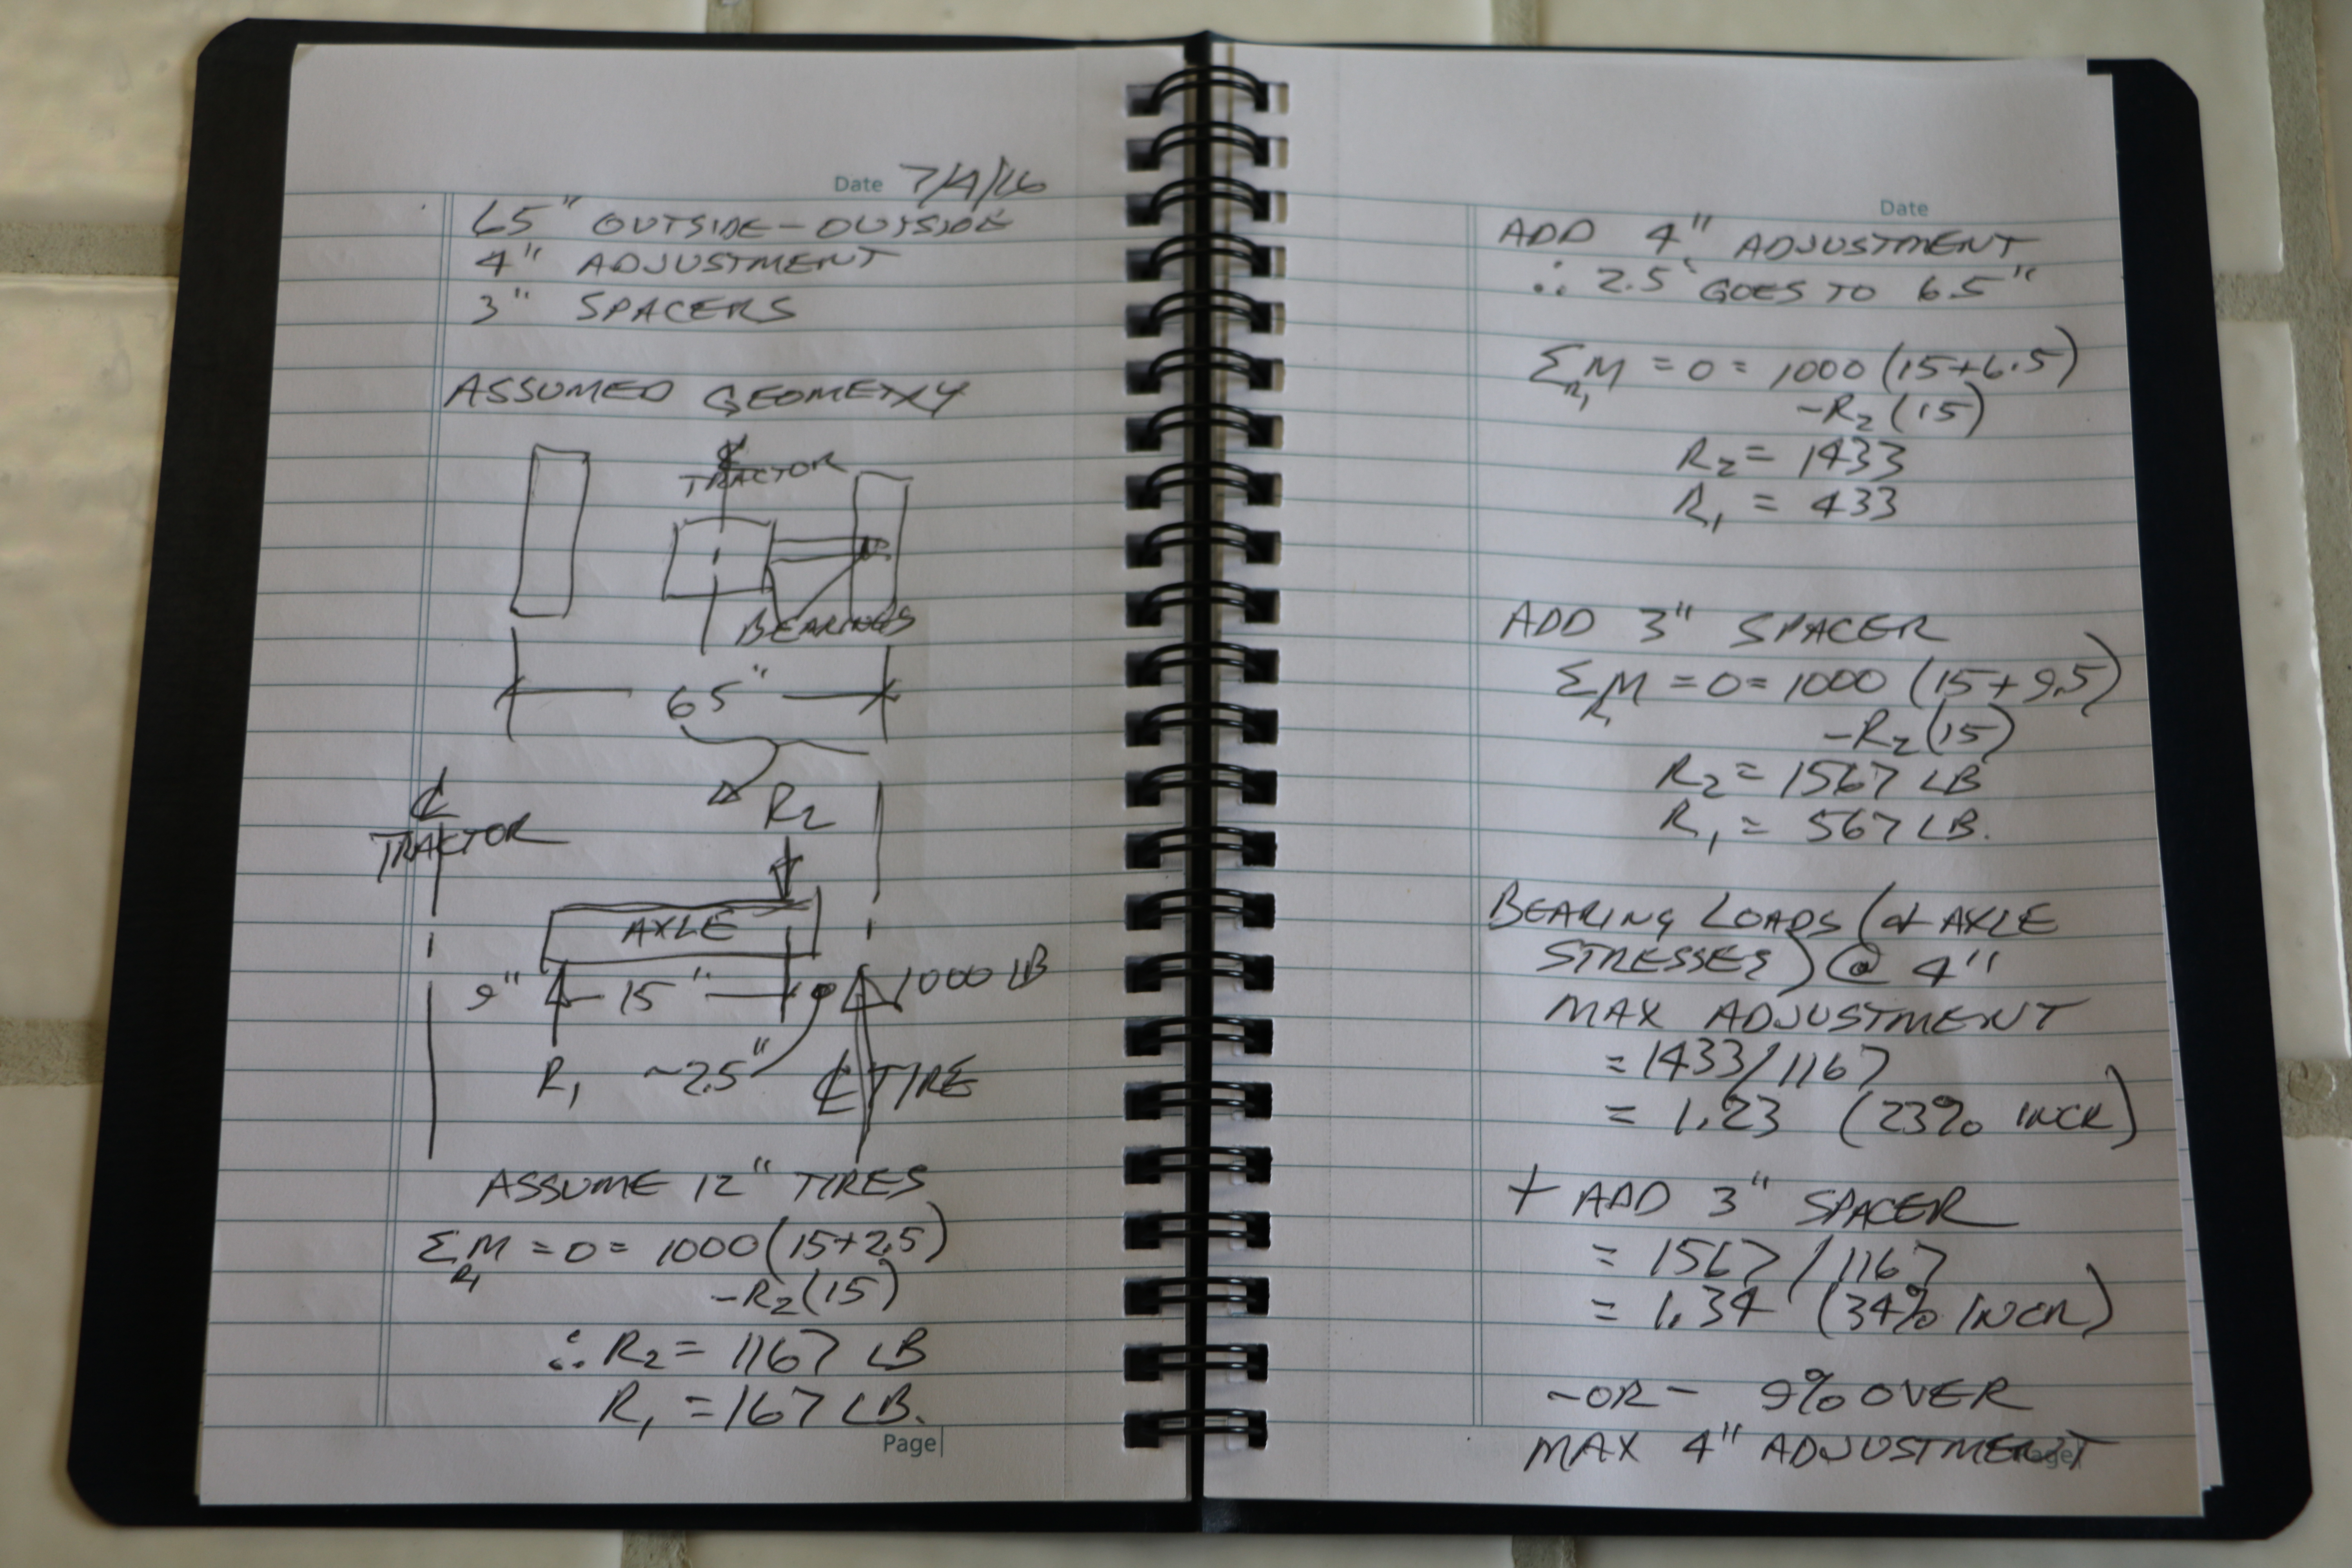 Date 7/4/16
65" OUTSIDE-OUTSIDE
4" ADJUSTMENT
3" SPACERS
ASSUMED GEOMETRY
℄
TRACTOR
BEARINGS
65"
℄
TRACTOR
R2
AXLE
9" 15" 1000 LB
R1 ~2.5" ℄ TIRE
ASSUME 12" TIRES
ΣM = 0 = 1000 (15+2.5)
R1
-R2 (15)
∴ R2 = 1167 LB
R1 = 167 LB.
Page
Date
ADD 4" ADJUSTMENT
∴ 2.5" GOES TO 6.5"
ΣM = 0 = 1000 (15+6.5)
R1
-R2 (15)
R2 = 1433
R1 = 433
ADD 3" SPACER
ΣM = 0 = 1000 (15+9.5)
R1
-R2 (15)
R2 = 1567 LB
R1 = 567 LB.
BEARING LOADS (& AXLE
STRESSES) @ 4"
MAX ADJUSTMENT
= 1433/1167
= 1.23 (23% INCR)
+ ADD 3" SPACER
= 1567/1167
= 1.34 (34% INCR)
-OR- 9% OVER
MAX 4" ADJUSTMENT
Page